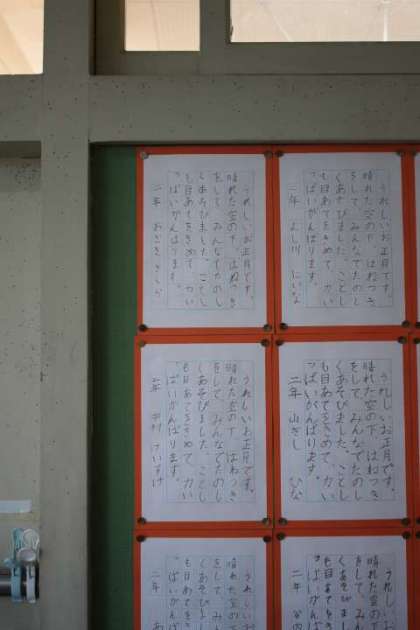 うれしいお正月です。
晴れた空の下 はねつき
をして、みんなでたのし
くあそびました。ことし
も目あてをきめて 力い
っぱいがんばります。
二年 よし川 にいな
うれしいお正月です。
晴れた空の下 はねつき
をして、みんなでたのし
くあそびました。ことし
も目あてをきめて 力い
っぱいがんばります。
二年 おざき さくら
うれしいお正月です。
晴れた空の下 はねつき
をして、みんなでたのし
くあそびました。ことし
も目あてをきめて 力い
っぱいがんばります。
二年 山ざし ひな
うれしいお正月です。
晴れた空の下 はねつき
をして、みんなでたのし
くあそびました。ことし
も目あてをきめて 力い
っぱいがんばります。
二年 中村 けいすけ
うれしいお
晴れた空の下
をして、みん
くあそびまし
も目あてをき
っぱいがんば
二年
うれしいお
晴れた空の下
をして、みん
くあそびまし
も目あてをき
っぱいがんば
二年 あ